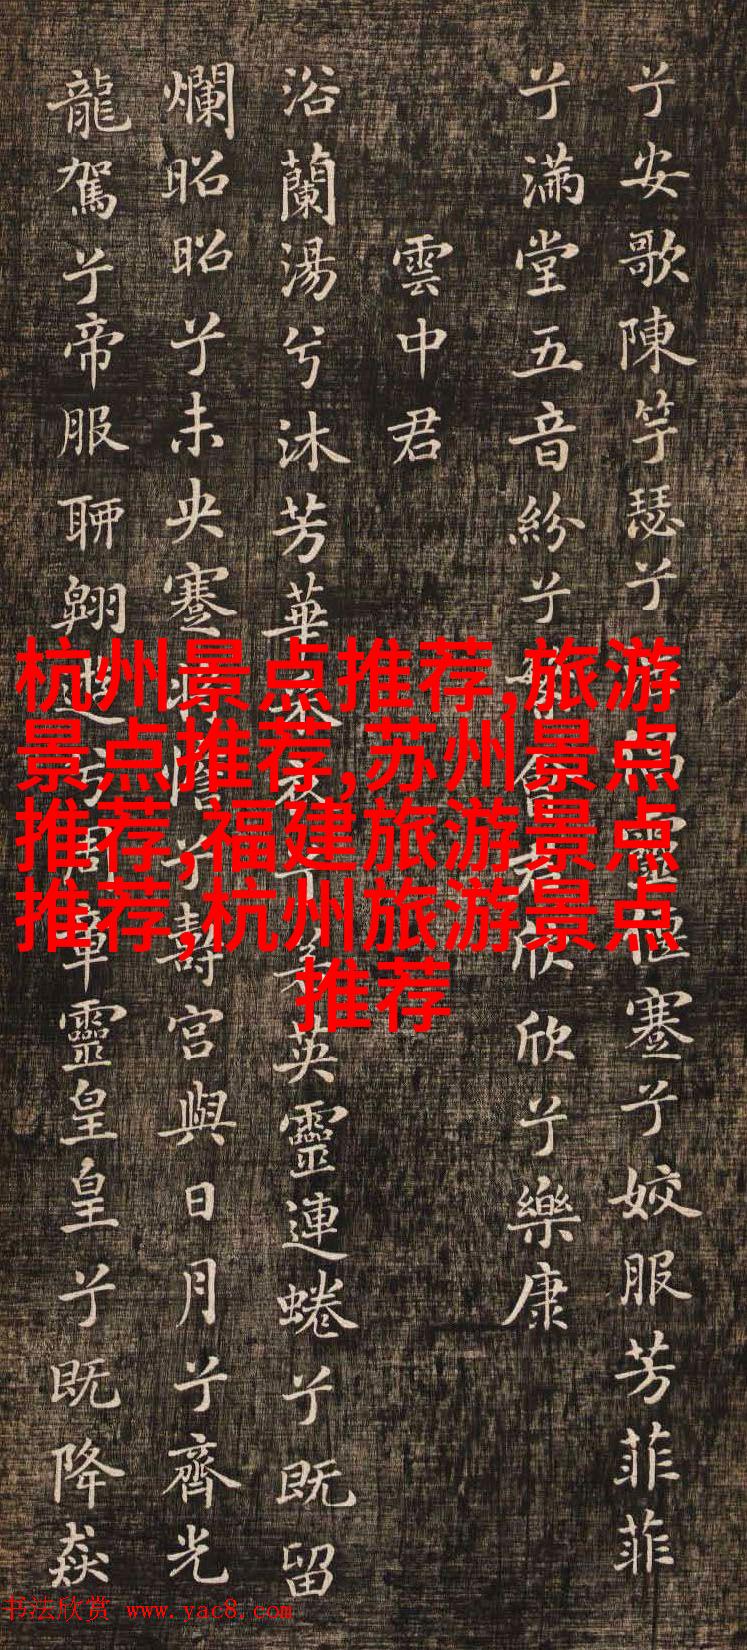 兮安歌陳竽瑟兮倡靈偃蹇兮姣服芳菲菲
兮滿堂五音紛兮繁會君欣欣兮樂康
雲中君
浴蘭湯兮沐芳華采衣兮若英靈連蜷兮既留
爛昭昭兮未央蹇將憺兮壽宮與日月兮齊光
龍駕兮帝服聊翱遊兮周章靈皇皇兮既降猋
杭州景点推荐,旅游
景点推荐,苏州景点
推荐,福建旅游景点
推荐,杭州旅游景点
推荐
书法欣赏 www.yac8.com